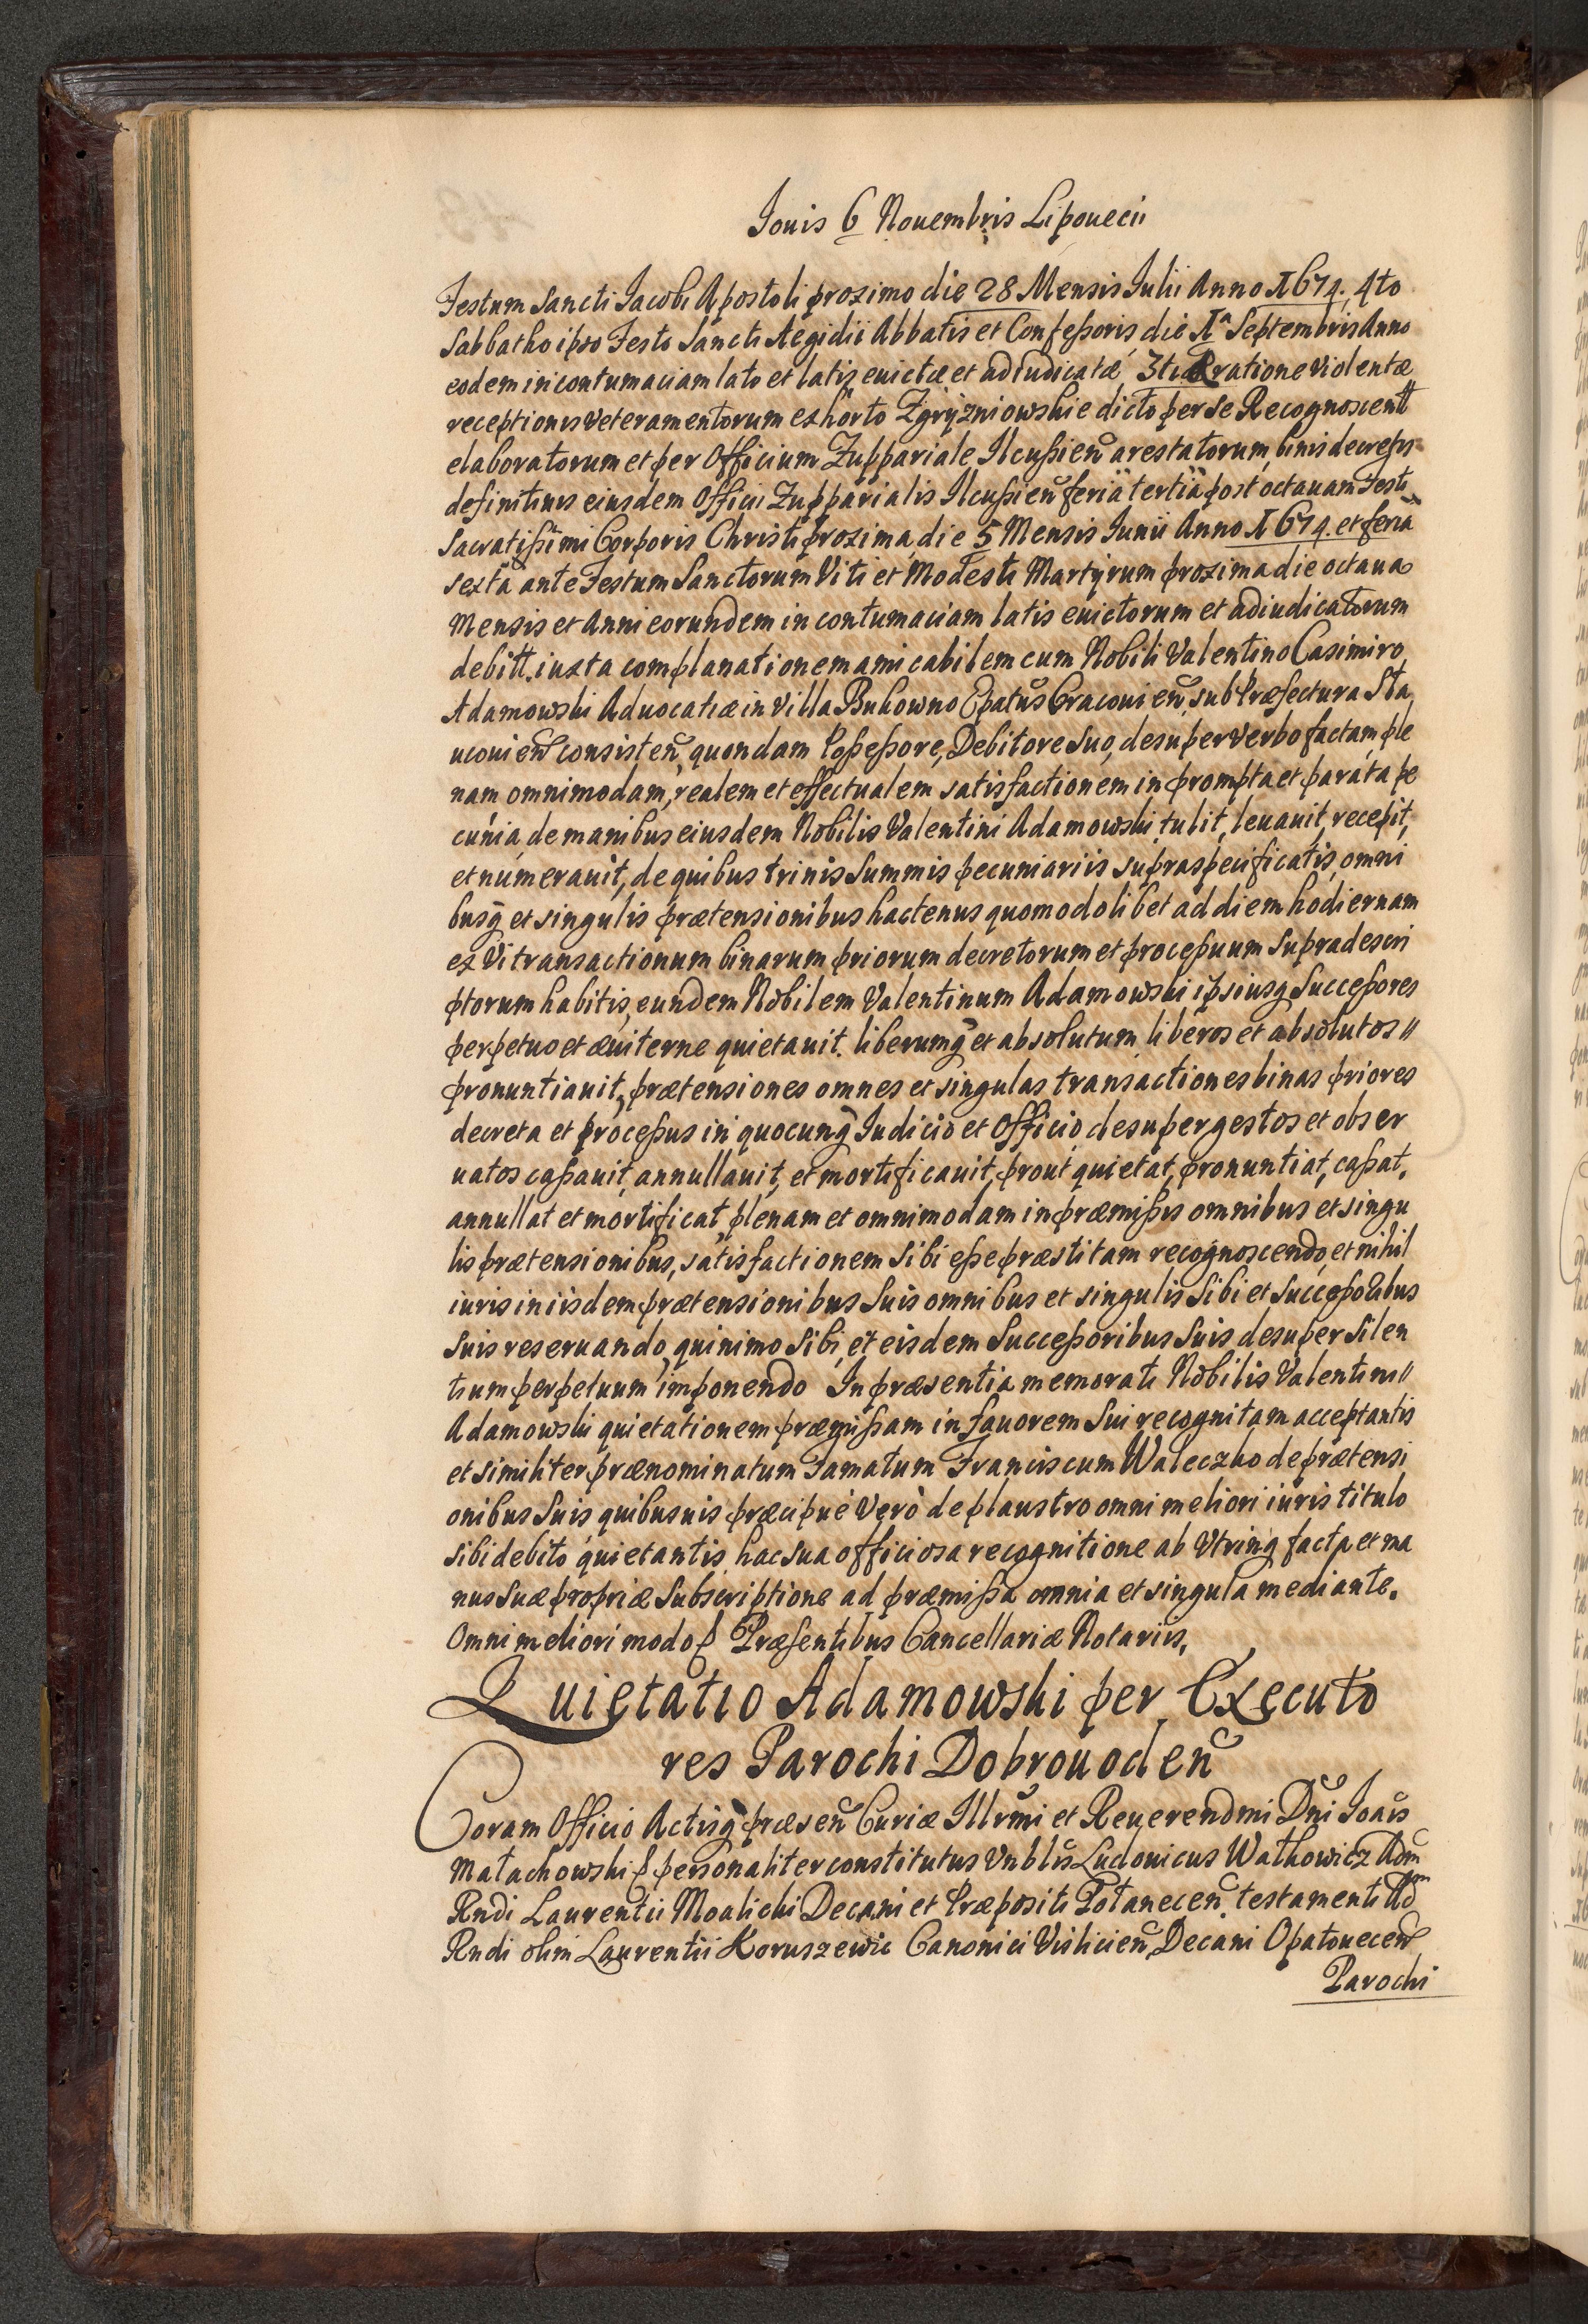 Iouis 6 Nouembris Lipouecii
Festum Sancti Iacobi Apostoli proximo die 28 Mensis Iulii Anno 1674. 4to
Sabbatho ipso Festo Sancti Aegidii Abbatis et Confeßoris die 1ª Septembris Anno
eodem in contumaciam lato et latis euictæ et adiudicatæ, 3tiæ ratione violentæ
receptionis veteramentorum ex horto Zgryzniowskie dicto per se Recognoscentt
elaboratorum et per Officium Zuppariale Ilcußień arestatorum, binis decretis
definitiuis eiusdem Officii Zupparialis Ilcußień feriâ tertiâ post octauam Festi
Sacratißimi Corporis Christi proxima, die 5 Mensis Iunii Anno 1674. et feriâ
sexta ante Festum Sanctorum Viti et Modesti Martyrum proxima die octaua
Mensis et Anni eorundem in contumaciam latis euictorum et adiudicatorum
debitt. iuxta complanationem amicabilem cum Nobili Valentino Casimiro
Adamowski Aduocatiæ in villa Bukowno Epatus Cracouień, sub Præfectura Sta
uconień consisteń, quondam Poßeßore, Debitore suo, desuper verbo factam, ple
nam omnimodam, realem et effectualem satisfactionem in prompta et parata pe
cunia, de manibus eiusdem Nobilis Valentini Adamowski tulit, leuauit, recepit,
et numerauit, de quibus trinis summis pecuniariis supraspecificatis, omni
busq et singulis prætensionibus hactenus quomodolibet ad diem hodiernam
ex vi transactionum binarum priorum decretorum et proceßuum supradescri
ptorum habitis, eundem Nobilem Valentinum Adamowski ipsiusq Succeßores
perpetuo et æuiterne quietauit. liberumq et absolutum, liberos et absolutos //
pronuntiauit, prætensiones omnes et singulas transactiones binas priores
decreta et proceßus in quocunq Iudicio et Officio desuper gestos et obser
uatos caßauit, annullauit, et mortificauit, prout quietat, pronuntiat, caßat,
annullat et mortificat, plenam et omnimodam in præmißis omnibus et singu
lis prætensionibus, satisfactionem sibi eße præstitam recognoscendo, et nihil
iuris in iisdem prætensionibus suis omnibus et singulis sibi et succeßoribus
suis reseruando, quinimo sibi, et eisdem Succeßoribus suis, desuper silen
tium perpetuum imponendo In præsentia memorati Nobilis Valentini //
Adamowski quietationem præmißam in fauorem sui recognitam acceptantis
et similiter prænominatum Famatum Franciscum Waleczko de prætensi
onibus suis quibusuis præcipuè verò de plaustro omni meliori iuris titulo
sibi debito quietantis, hac sua officiosa recognitione ab vtrinq facta et ma
nus suæ propriæ Subscriptione ad præmißa omnia et singula mediante.
Omni meliori modo Præsentibus Cancellariæ Notariis,
Quietatio Adamowski per Executo
res Parochi Dobrouodeń
Coram Officio Actisq præseń Curiæ Illrmi et Reuerendmi Dni Ioais
Matachowski personaliter constitutus Vnblis Ludouicus Watkowicz Adm
Rndi Laurentii Moalicki Decani et Præpositi Potaneceń. testamenti Adm
Rndi olim Laurentii Koruszewic Canonici Vislicień, Decani Opatoueceń
Parochi